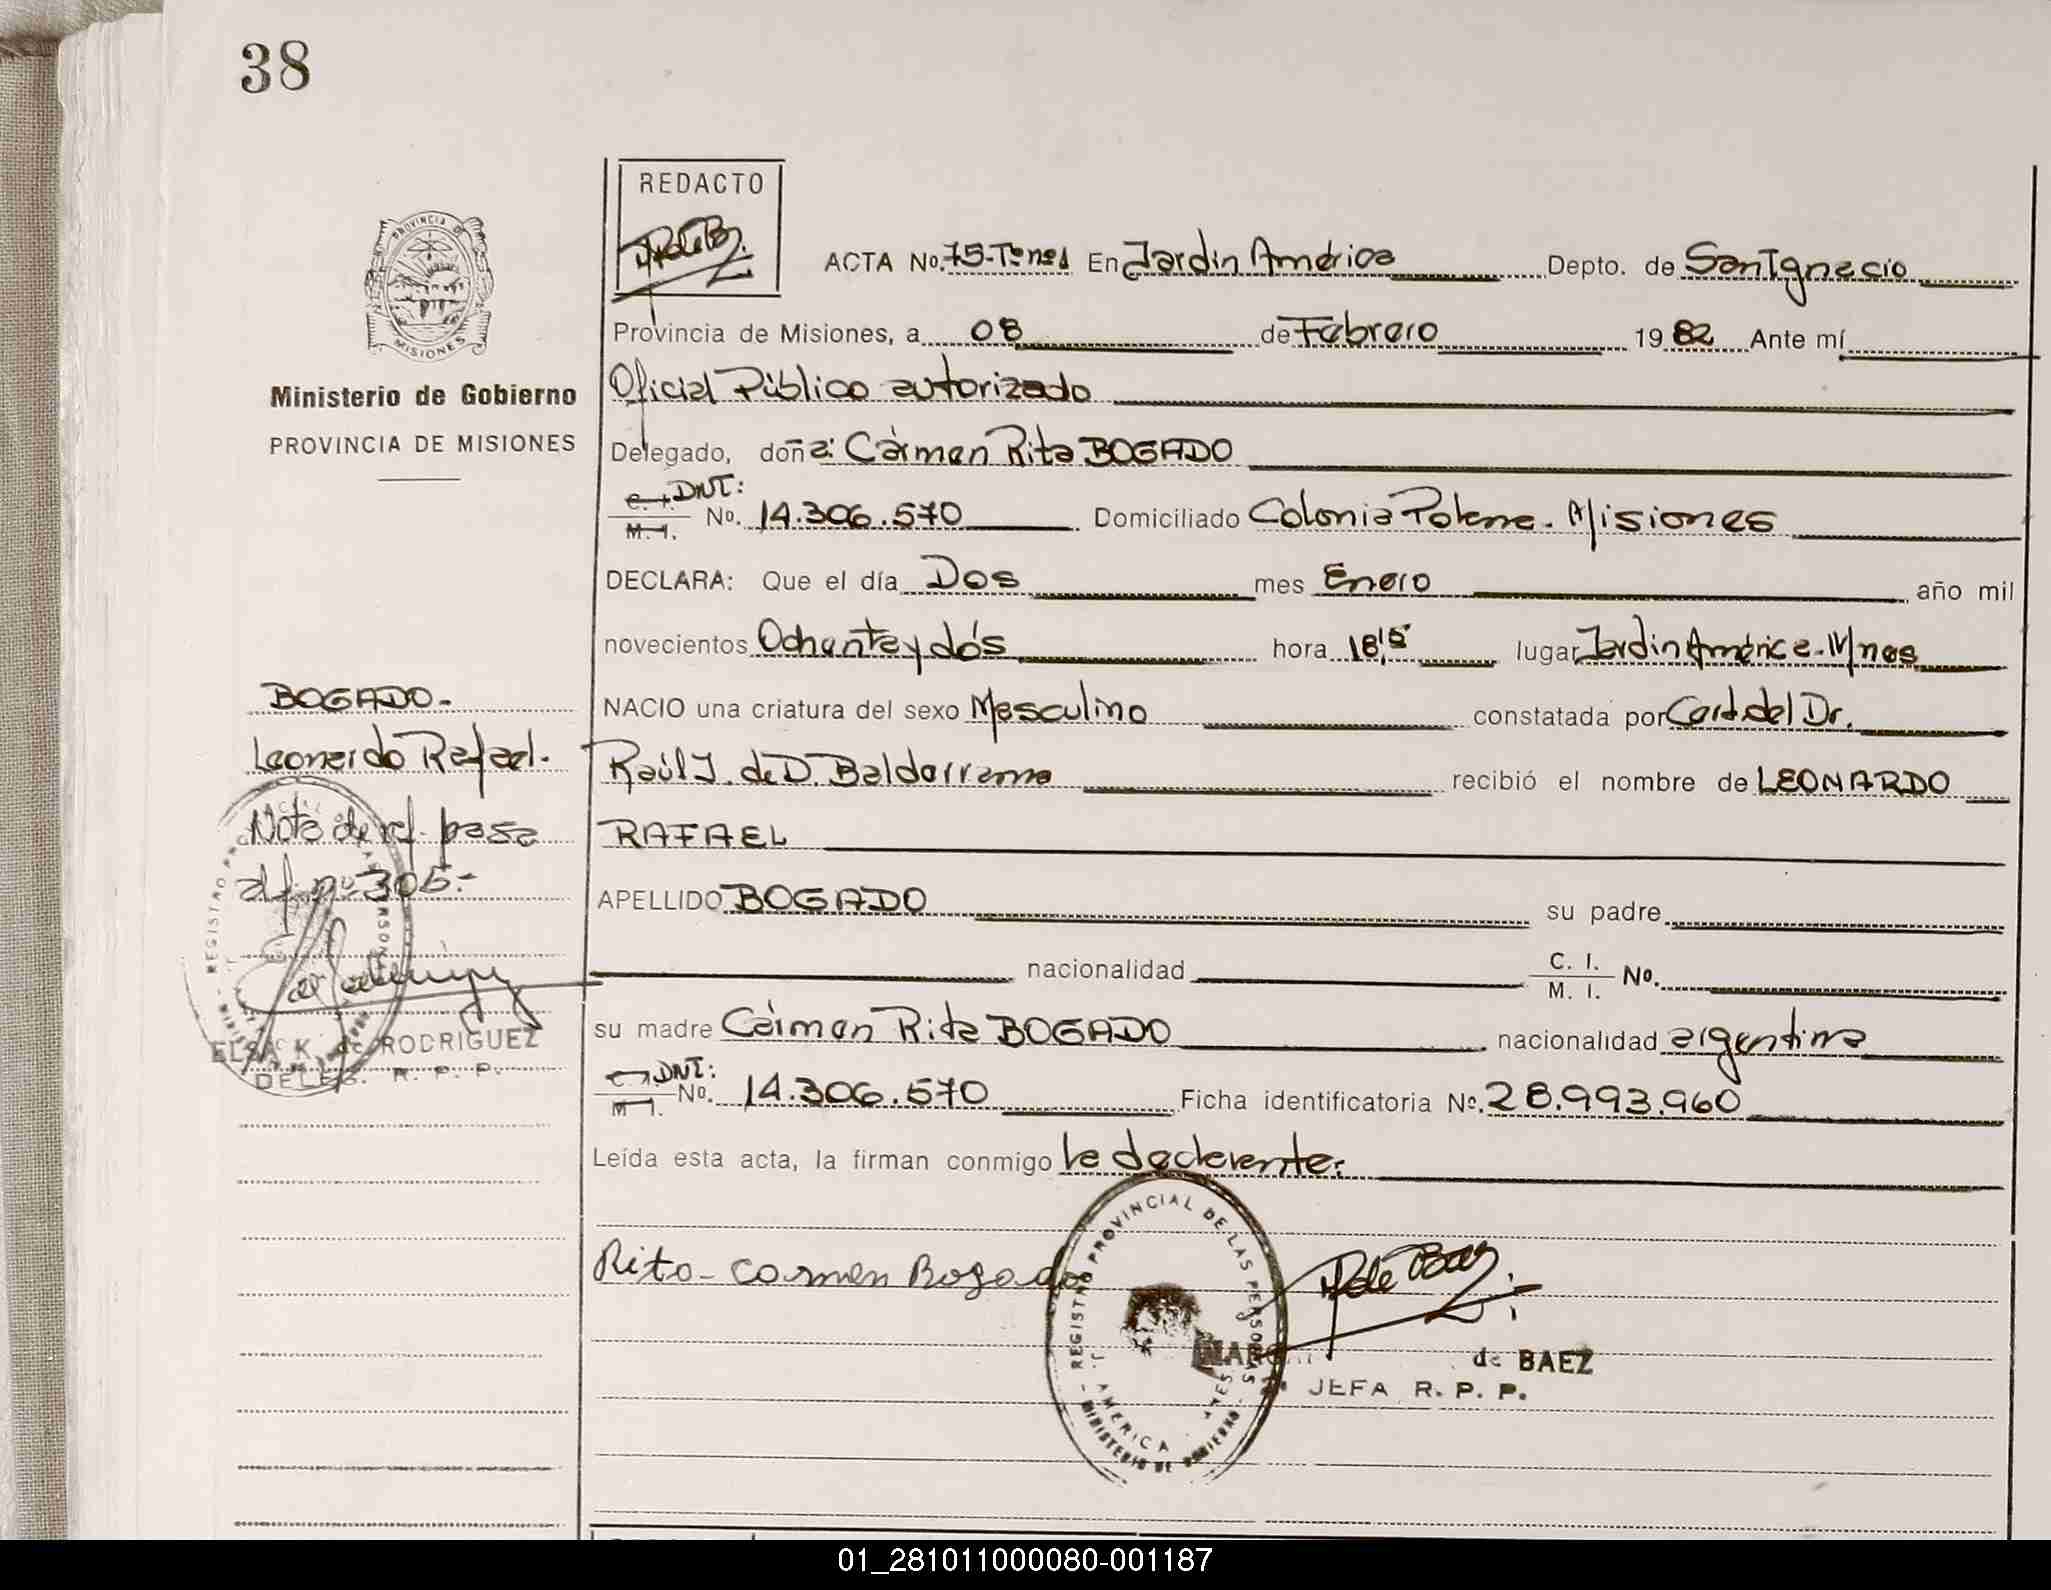 38
REDACTO
PROVINCIA D
MISIONES
ACTA No. 75-Tº nº1 En Jardin América Depto. de San Ignacio
Provincia de Misiones, a 08 de Febrero 1982 Ante mí
Ministerio de Gobierno
PROVINCIA DE MISIONES
Oficial Público autorizado
Delegado, doña: Cármen Rita BOGADO
DNI:
M. I. No. 14.306.570 Domiciliado Colonia Polana. Misiones
DECLARA: Que el día Dos mes Enero año mil
novecientos Ochenta y dós hora 18,15 lugar Jardin América-Mnes
BOGADO-
Leonardo Rafael.
Nota de ref. pasa
al f. nº 305.-
ELSA K. de RODRIGUEZ
DELEG. R. P. P.
NACIO una criatura del sexo Masculino constatada por Cert. del Dr.
Raúl J. de D. Balderrama recibió el nombre de LEONARDO
RAFAEL
APELLIDO BOGADO su padre
nacionalidad C. I. M. I. No.
su madre Cármen Rita BOGADO nacionalidad argentina
DNI:
M I. No. 14.306.570 Ficha identificatoria No. 28.993.960
Leída esta acta, la firman conmigo la declarante.
Rito- carmen Bogado
- REGISTRO PROVINCIAL DE LAS PERSONAS - MINISTERIO DE GOBIERNO
J. AMERICA
de BAEZ
JEFA R. P. P.
01_281011000080-001187